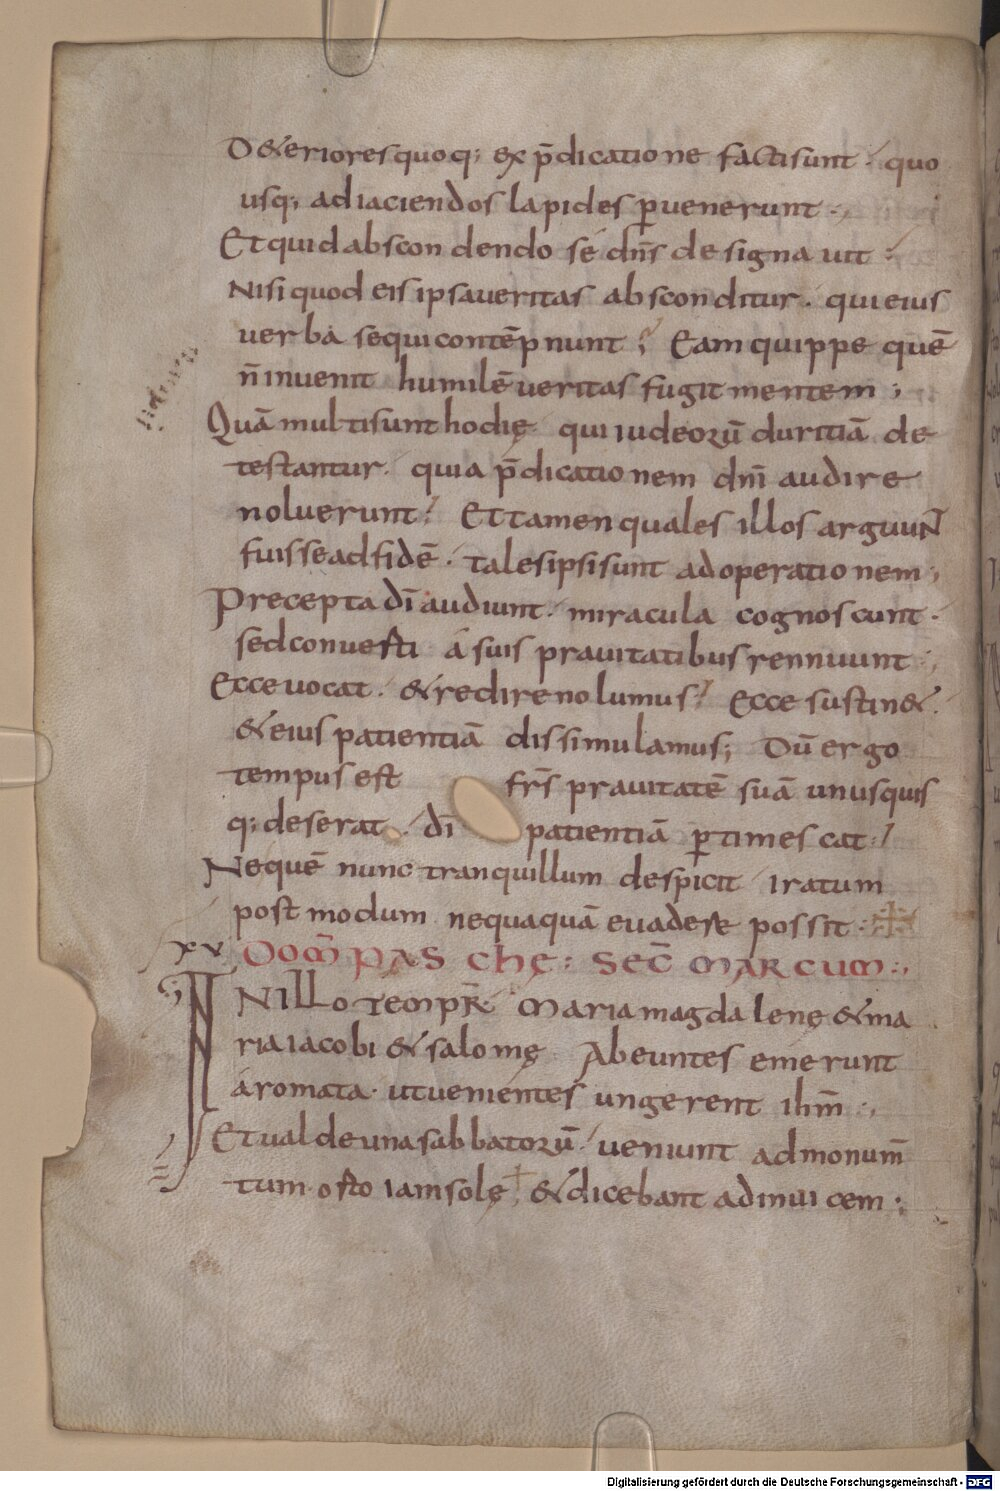 D&erioresquoq; ex p̄dicatione factisunt · quo
usq; adiaciendos lapides ꝑuenerunt ·,
Etquidabscondendo sé dn̄s designauit ·
Nisi quod eis ipsaueritas absconditur · quieius
uerba sequicontēpnunt ; Eamquippe quē
n̄inuenit humilē ueritas fugit mentem ;
Quāmultisunt hodię qui iudeorū duritiā de
testantur · quia p̄dicationem dn̄i audire
noluerunt ; Ettamenquales illos arguuNT
fuisseadfidē · talesipsisunt adoperationem ;
Precepta dī audiunt · miracula cognoscunt ·
sedconuerti á suis prauitatibus rennuunt ;
Ecce uocat · &redirenolumus ; Ecce sustin& ·
&eius patientiā dissimulamus ; Dū ergo
tempus est fr̄s prauitatē suā unusquis
q; deserat · dī patientiā ꝑtimescat ;
Nequē nunc tranquillum despicit iratum
postmodum nequaquā euadere possit ·
xv DOM̄ PASCHĘ : SEC̄ MARCUM ·,
INILLo TEMPR̄ Mariamagdalenę &ma
riaiacobi & salomę Abeuntes emerunt
áromata · utuenientes ungerent ihm̄ ·,
Etualdeunasabbatorū · ueniunt admonum̄
tum · orto iamsolę & dicebant adinuicem ;
Digitalisierung gefördert durch die Deutsche Forschungsgemeinschaft - DFG